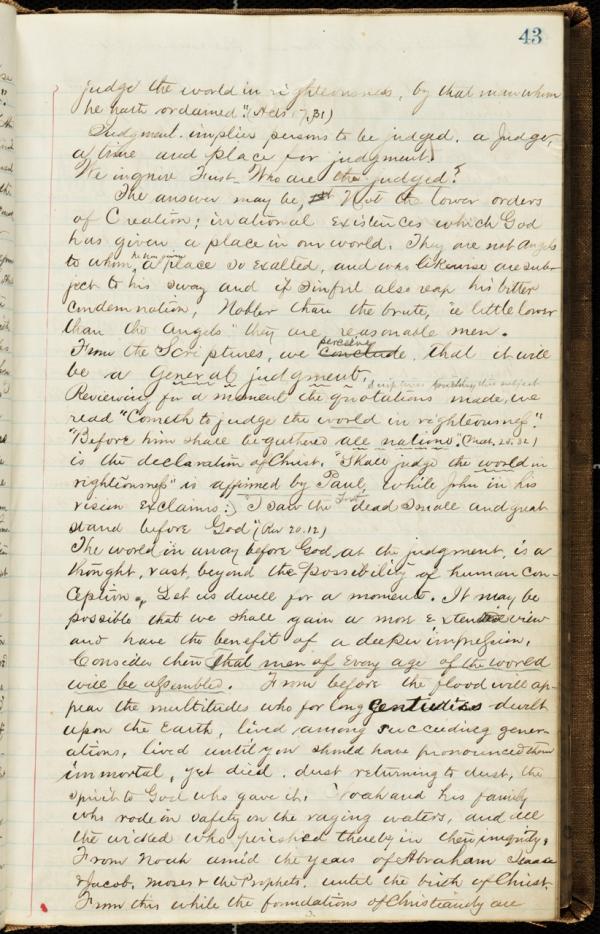 43
judge the world in righteousness, by that man whom
he hath ordained." (Acts 17,31)
Judgment implies persons to be judged, a Judge,
a time and place for judgment.
We inquire First. Who are the judged?
The answer may be, Not the lower orders
of Creation; irrational existences which God
has given a place in our world. They are not Angels
to whom he has given a place so exalted, and who likewise are sub-
ject to his sway and if sinful also reap his bitter
condemnation, Nobler than the brute, "a little lower
than the angels" they are, reasonable men.
From the Scriptures, we perceive conclude, that it will
be a General judgment.
Scriptures touching this subject
Reviewing for a moment the quotations made, we
read "Cometh to judge the world in righteousness".
"Before him shall be gathered all nations". (Mat. 25.32)
is the declaration of Christ. "Shall judge the world in
righteousness" is affirmed by Paul, while John in his
vision exclaims:) "I saw the dead small and great
stand before God" (Rev 20.12)
The world in array before God at the judgment, is a
thought, vast, beyond the possibility of human con-
ception. Let us dwell for a moment. It may be
possible that we shall gain a more extended view
and have the benefit of a deeper impression.
Consider then that men of every age of the world
will be assembled. From before the flood will ap-
pear the multitudes who for long centuries dwelt
upon the Earth, lived among succeeding gener-
ations, lived until you should have pronounced them
immortal, yet died. dust returning to dust, the
spirit to God who gave it. Noah and his family
who rode in safety on the raging waters, and all
the wicked who perished thereby in their iniquity.
From Noah amid the years of Abraham Isaac
& Jacob, Moses & the Prophets. until the birth of Christ.
From this while the foundations of Christianity are